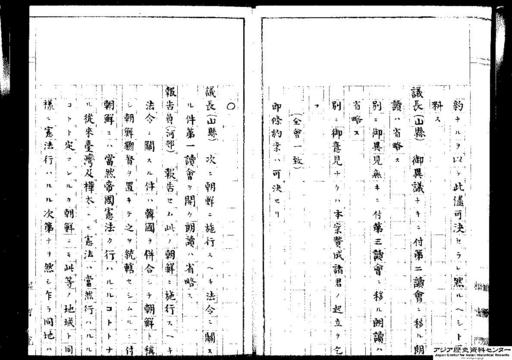 約ナルヲ以テ此儘可決セラレ然ルヘシト
料ス
議長(山縣) 御異議ナキニ付第二讀會ニ移ル朗
讀ハ省略ス
別ニ御異見無キニ付第三讀會ニ移ル朗讀ハ
省略ス
別ニ御意見ナクハ本案賛成諸君ノ起立ヲ乞
フ
(全會一致)
即條約案ハ可決セリ
○
議長(山縣) 次ニ朝鮮ニ施行スヘキ法令ニ關
ル件第一讀會ヲ開ク朗讀ハ省略ス
報告員(河野) 報告セム此ノ朝鮮ニ施行スヘキ
法令ニ關スル件ハ韓國ヲ併合シテ朝鮮ト稱
シ朝鮮總督ヲ置キテ之ヲ統轄セシムルニ付
朝鮮ニハ當然帝國憲法ノ行ハルルコトトナ
ル從來臺灣及樺太ニモ憲法ハ當然行ハルル
コトト定マレルカ朝鮮ニモ此等ノ地域ト同
樣ニ憲法行ハルル次第ナリ然シ乍ラ同地ハ
アジア歴史資料センター
Japan Center for Asian Historical Records